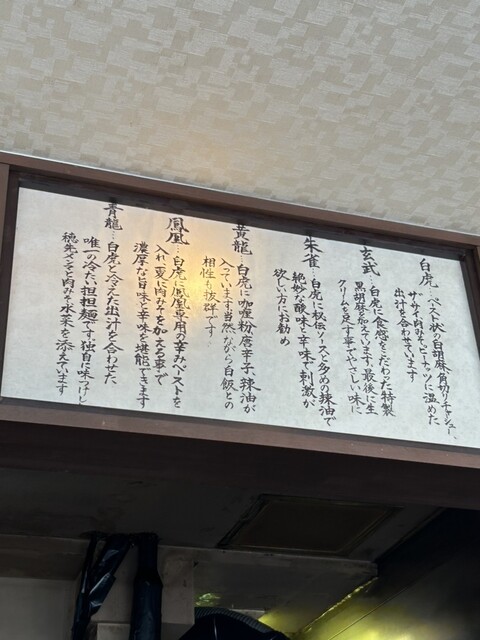 白虎…ペスト状の白胡麻、角切りチャーシュー、
ザーサイ、肉みそ、ピーナッツに温めた
出汁を合わせています
玄武…白虎に食感をこだわった特製
黒胡麻を加えています。最後に生
クリームを足す事でやさしい味に
朱雀…白虎に秘伝ソースと多めの辣油で
絶妙な酸味と辛味で刺激が
欲しい方にお勧め
黄龍…白虎に咖喱粉、唐辛子、辣油が
入っています。当然ながら白飯との
相性も抜群です
鳳凰…白虎に鳳凰専用の辛みペーストを
入れ、更に肉みそを加える事で
濃厚な旨味と辛味を堪能できます
青龍…白虎と冷えた出汁を合わせた
唯一の冷たい担担麺です。独自に味つけし
穂先メンマと肉みそ、水菜を添えています